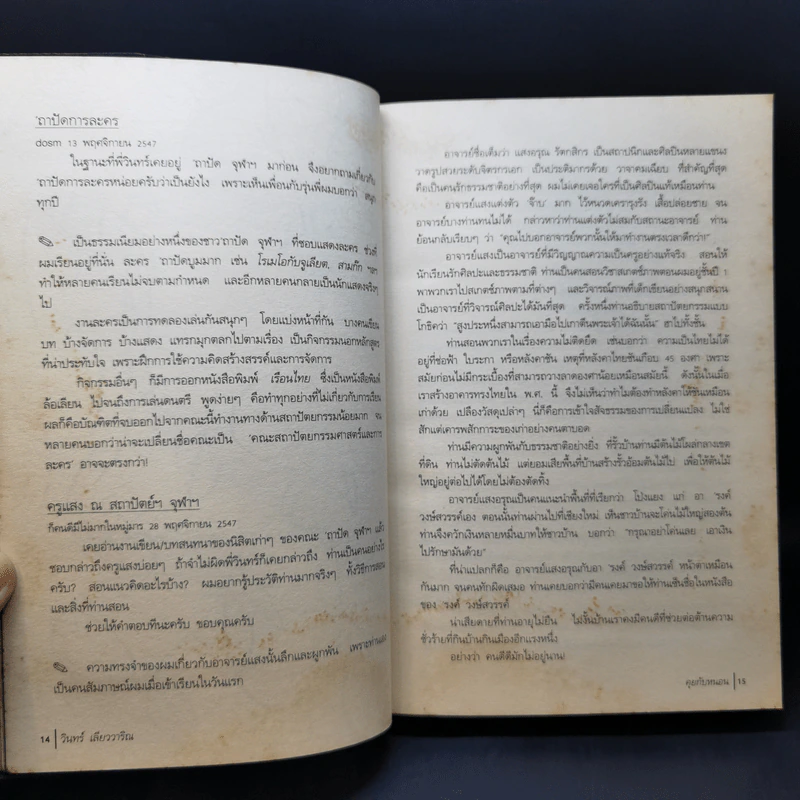 'ถาปัดการละคร
dosm 13 พฤศจิกายน 2547
ในฐานะที่พี่วินทร์เคยอยู่ 'ถาปัด จุฬาฯ มาก่อน จึงอยากถามเกี่ยวกับ
'ถาปัดการละครหน่อยครับว่าเป็นยังไง เพราะเห็นเพื่อนกับรุ่นพี่ผมบอกว่า สนุก
ทุกปี
✎ เป็นธรรมเนียมอย่างหนึ่งของชาว'ถาปัด จุฬาฯ ที่ชอบแสดงละคร ช่วงที่
ผมเรียนอยู่ที่นั่น ละคร 'ถาปัดบูมมาก เช่น โรเมโอกับจูเลียต, สามก๊ก ฯลฯ
ทำให้หลายคนเรียนไม่จบตามกำหนด และอีกหลายคนกลายเป็นนักแสดงจริงๆ
ไป
งานละครเป็นการทดลองเล่นกันสนุกๆ โดยแบ่งหน้าที่กัน บางคนเขียน
บท บ้างจัดการ บ้างแสดง แทรกมุกตลกไปตามเรื่อง เป็นกิจกรรมนอกหลักสูตร
ที่น่าประทับใจ เพราะฝึกการใช้ความคิดสร้างสรรค์และการจัดการ
กิจกรรมอื่นๆ ก็มีการออกหนังสือพิมพ์ เรือนไทย ซึ่งเป็นหนังสือพิมพ์
ล้อเลียน ไปจนถึงการเล่นดนตรี พูดง่ายๆ คือทำทุกอย่างที่ไม่เกี่ยวกับการเรียน
ผลก็คือบัณฑิตที่จบออกไปจากคณะนี้ทำงานทางด้านสถาปัตยกรรมน้อยมาก จน
หลายคนบอกว่าน่าจะเปลี่ยนชื่อคณะเป็น 'คณะสถาปัตยกรรมศาสตร์และการ
ละคร' อาจจะตรงกว่า!
ครูแสง ณ สถาปัตย์ฯ จุฬาฯ
ก็คนดีมีไม่มากในหมู่มาร 28 พฤศจิกายน 2547
เคยอ่านงานเขียน/บทสนทนาของนิสิตเก่าๆ ของคณะ 'ถาปัด จุฬาฯ แล้ว
ชอบกล่าวถึงครูแสงบ่อยๆ ถ้าจำไม่ผิดพี่วินทร์ก็เคยกล่าวถึง ท่านเป็นคนอย่างไร
ครับ? สอนแนวคิดอะไรบ้าง? ผมอยากรู้ประวัติท่านมากจริงๆ ทั้งวิธีการสอน
และสิ่งที่ท่านสอน
ช่วยให้คำตอบทีนะครับ ขอบคุณครับ
✎ ความทรงจำของผมเกี่ยวกับอาจารย์แสงนั้นลึกและผูกพัน เพราะท่าน
เป็นคนสัมภาษณ์ผมเมื่อเข้าเรียนในวันแรก
14 | วินทร์ เลียววาริณ
อาจารย์ชื่อเต็มว่า แสงอรุณ รัตกสิกร เป็นสถาปนิกและศิลปินหลายแขนง
วาดรูปสวยระดับจิตรกรเอก เป็นประติมากรด้วย วาจาคมเฉียบ ที่สำคัญที่สุด
คือเป็นคนรักธรรมชาติอย่างที่สุด ผมไม่เคยเจอใครที่เป็นศิลปินแท้เหมือนท่าน
อาจารย์แสงแต่งตัว 'จ๊าบ' มาก ไว้หนวดเครารุงรัง เสื้อปล่อยชาย จน
อาจารย์บางท่านทนไม่ได้ กล่าวหาว่าท่านแต่งตัวไม่สมกับสถานะอาจารย์ ท่าน
ย้อนกลับเรียบๆ ว่า "คุณไปบอกอาจารย์พวกนั้นให้มาทำงานตรงเวลาดีกว่า!"
อาจารย์แสงเป็นอาจารย์ที่มีวิญญาณความเป็นครูอย่างแท้จริง สอนให้
นักเรียนรักศิลปะและธรรมชาติ ท่านเป็นคนสอนวิชาสเกตช์ภาพตอนผมอยู่ชั้นปี 1
พาพวกเราไปสเกตช์ภาพตามที่ต่างๆ และวิจารณ์ภาพที่เด็กเขียนอย่างสนุกสนาน
เป็นอาจารย์ที่วิจารณ์ศิลปะได้มันที่สุด ครั้งหนึ่งท่านอธิบายสถาปัตยกรรมแบบ
โกธิคว่า "สูงประหนึ่งสามารถเอามือไปเกาตีนพระเจ้าได้ฉันนั้น" ฮาไปทั้งชั้น
ท่านสอนพวกเราในเรื่องความไม่ยึดติด เช่นบอกว่า ความเป็นไทยไม่ได้
อยู่ที่ช่อฟ้า ใบระกา หรือหลังคาชัน เหตุที่หลังคาไทยชันเกือบ 45 องศา เพราะ
สมัยก่อนไม่มีกระเบื้องที่สามารถวางลาดองศาน้อยเหมือนสมัยนี้ ดังนั้นในเมื่อ
เราสร้างอาคารทรงไทยใน พ.ศ. นี้ จึงไม่เห็นว่าทำไมต้องทำหลังคาให้ชันเหมือน
เก่าด้วย เปลืองวัสดุเปล่าๆ นี่ก็คือการเข้าใจสัจธรรมของการเปลี่ยนแปลง ไม่ใช่
สักแต่เคารพสักการะของเก่าอย่างคนตาบอด
ท่านมีความผูกพันกับธรรมชาติอย่างยิ่ง ที่รั้วบ้านท่านมีต้นไม้โผล่กลางเขต
ที่ดิน ท่านไม่ตัดต้นไม้ แต่ยอมเสียพื้นที่บ้านสร้างรั้วอ้อมต้นไม้ไป เพื่อให้ต้นไม้
ใหญ่อยู่ต่อไปได้โดยไม่ต้องตัดทิ้ง
อาจารย์แสงอรุณเป็นคนแนะนำพื้นที่ที่เรียกว่า โป่งแยง แก่ อา 'รงค์
วงษ์สวรรค์เอง ตอนนั้นท่านผ่านไปที่เชียงใหม่ เห็นชาวบ้านจะโค่นไม้ใหญ่สองต้น
ท่านจึงควักเงินหลายหมื่นบาทให้ชาวบ้าน บอกว่า "กรุณาอย่าโค่นเลย เอาเงิน
ไปรักษามันด้วย"
ที่น่าแปลกก็คือ อาจารย์แสงอรุณกับอา 'รงค์ วงษ์สวรรค์ หน้าตาเหมือน
กันมาก จนคนทักผิดเสมอ ท่านเคยบอกว่ามีคนเคยมาขอให้ท่านเซ็นชื่อในหนังสือ
ของ 'รงค์ วงษ์สวรรค์
น่าเสียดายที่ท่านอายุไม่ยืน ไม่งั้นบ้านเราคงมีคนดีที่ช่วยต่อต้านความ
ชั่วร้ายที่กินบ้านกินเมืองอีกแรงหนึ่ง
อย่างว่า คนดีดีมักไม่อยู่นาน!
คุยกับหนอน | 15